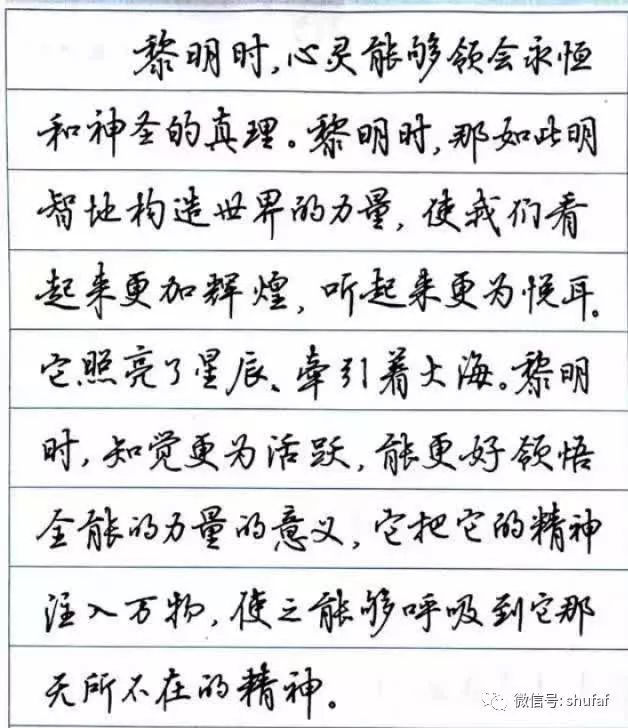 黎明时,心灵能够领会永恒
和神圣的真理。黎明时,那如此明
智地构造世界的力量,使我们看
起来更加辉煌,听起来更为悦耳。
它照亮了星辰、牵引着大海。黎明
时,知觉更为活跃,能更好领悟
全能的力量的意义,它把它的精神
注入万物,使之能够呼吸到它那
无所不在的精神。
微信号: shufaf